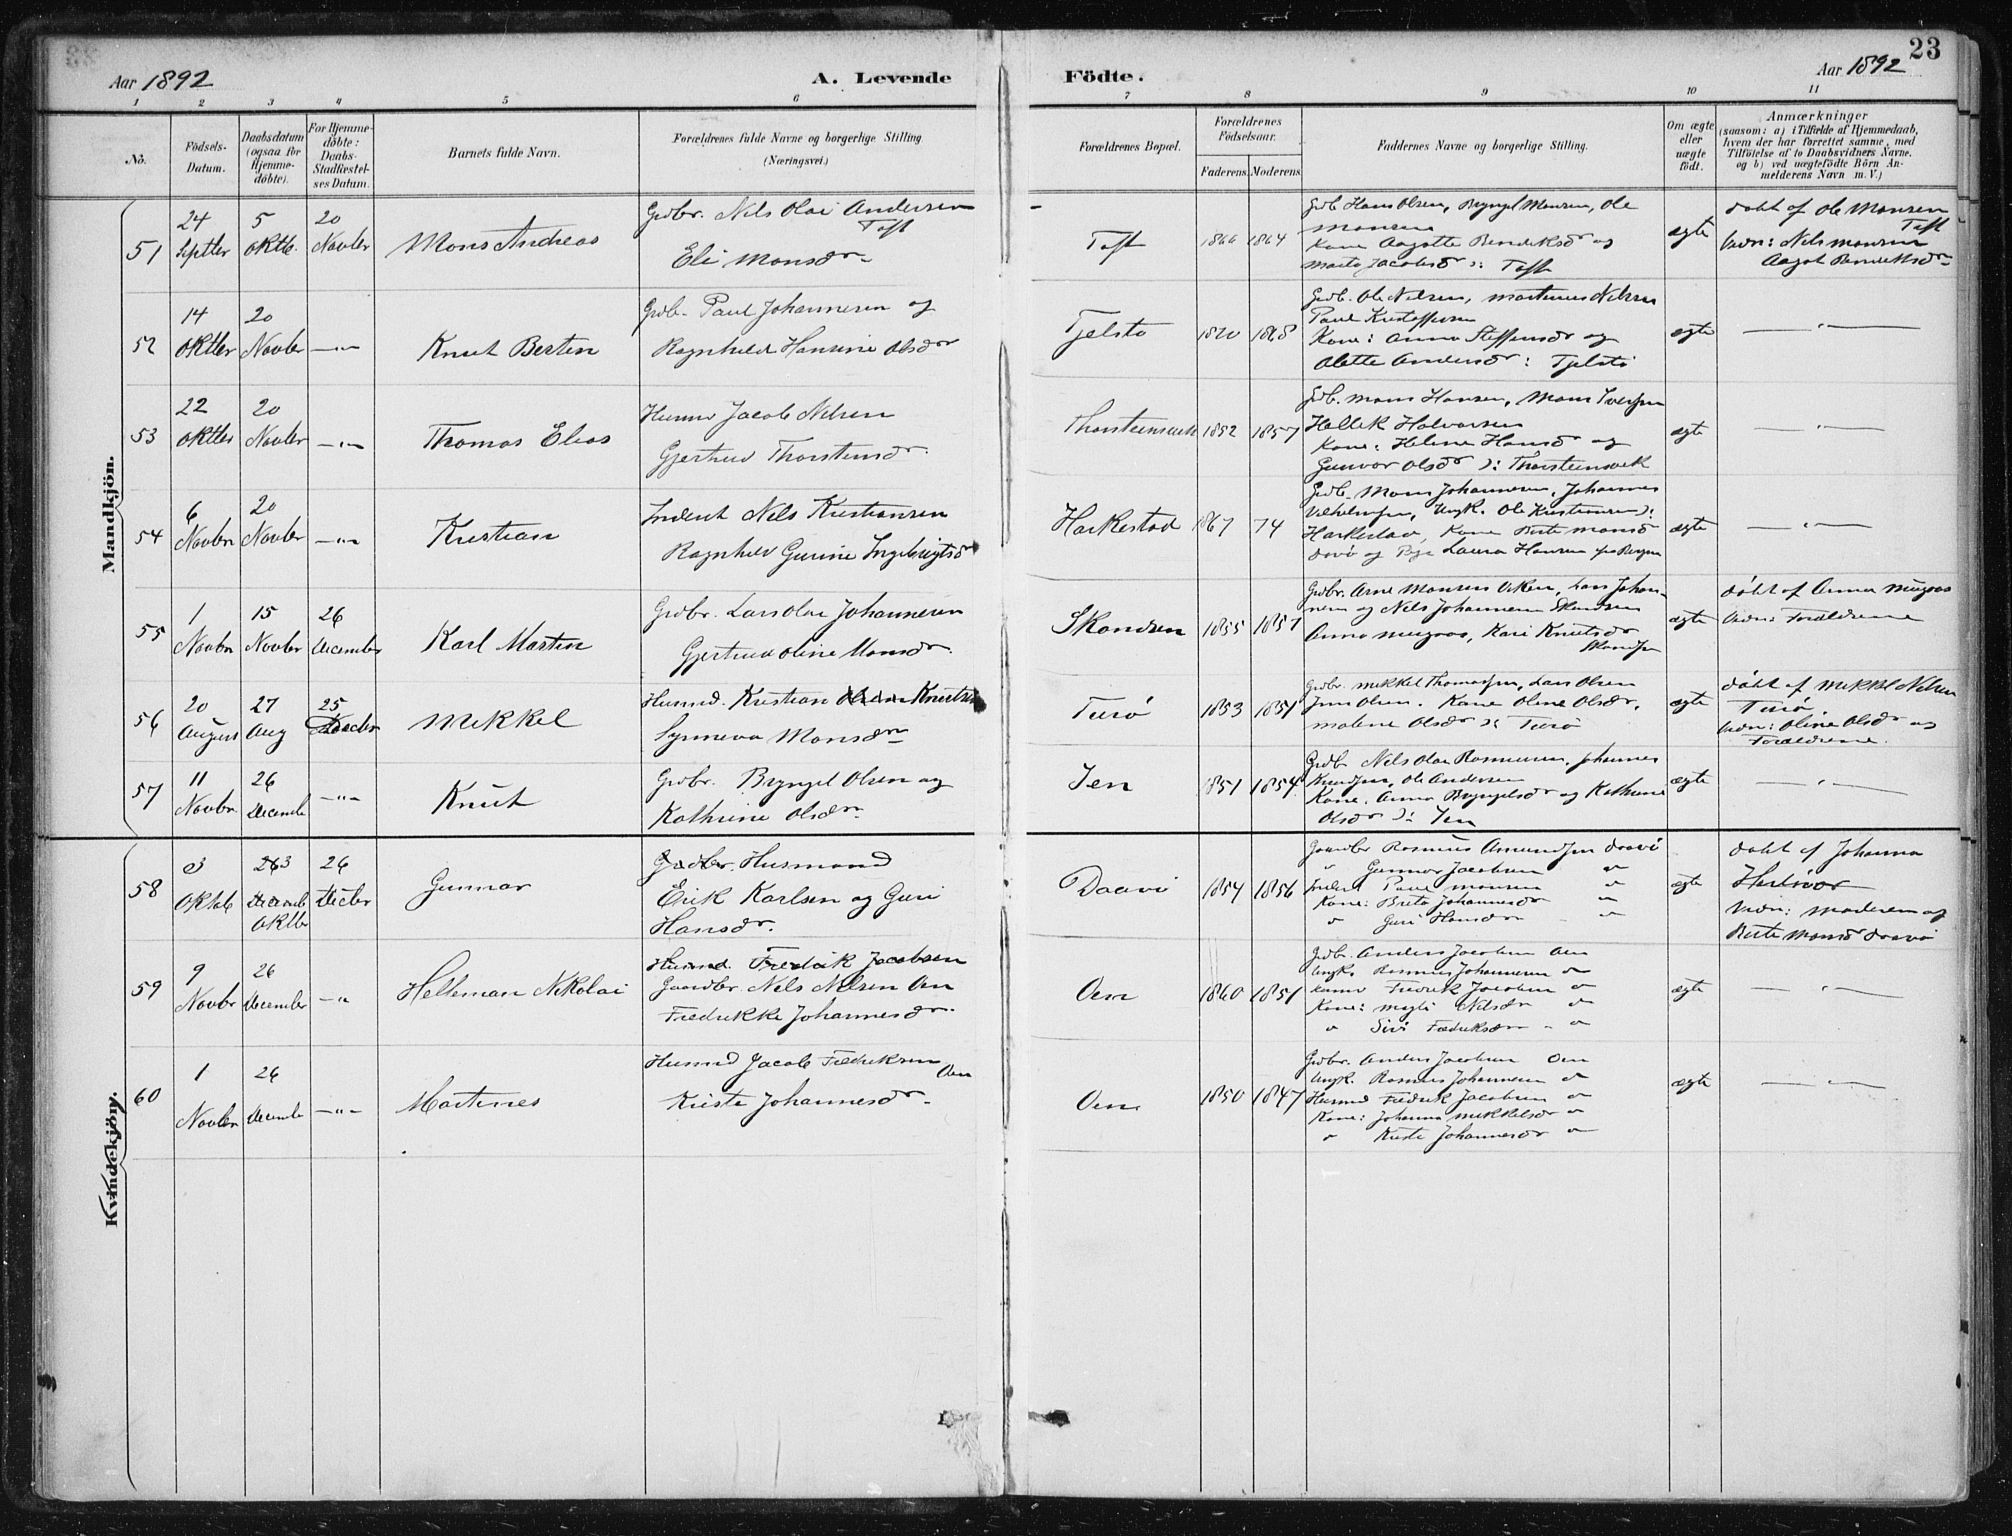 23
Aar 1892
A. Levende
Födte.
Aar 1892
1 2 3 4 5 6 7 8 9 10 11
No.
Födsels-Datum.
Daabsdatum (ogsaa for Hjemme-döbte).
For Hjemme-döbte: Daabs-Stadfæstel-ses Datum.
Barnets fulde Navn.
Forældrenes fulde Navne og borgerlige Stilling
(Næringsvei.)
Forældrenes Bopæl.
Forældrenes Födselsaar.
Faderens. Moderens.
Faddernes Navne og borgerlige Stilling.
Om ægte eller uægte født.
Anmærkninger
(saasom: a) i Tilfælde af Hjemmedaab,
hvem der har forrettet samme, med
Tilföielse af to Daabsvidners Navne.
og b) ved uægtefödte Börn An-
melderens Navn m. V.)
Mandkjön.
51
24 Septbr
5 Oktb.
20 Novbr
Mons Andreas
Grdbr. Nils Olai Andersen
Toft
Eli Monsdr
Toft
1866 1864
Grdb Hans Olsen, Brynyel Monsen, Ole
Monsen
Kone Aagotte Bendiksdr og
Marta Jacobsdr ): Toft
ægte
døbt af Ole Monsen
Toft
Vidn: Nils Monsen
Aagot Bendiksdr
52
14 Oktbr
20 Novbr
—"—
Knut Bertin
Grdb. Paul Johannesen og
Ragnhild Hansine Olsdr
Tjelsto
1820 1868
Grdb. Ole Nilsen, Martinus Nilsen
Paul Kristoffersen
Kone: Anna Steffensdr og
Olette Andersdr : Tjelstö
ægte
—"—
53
22 Oktbr
20 Novbr
—"—
Thomas Elias
Husmd Jacob Nilsen
Gjertrud Thorstensdr.
Thorsteinsvik
1852 1857
Grdb. Mons Hansen, Mons Iversen
Hallek Halvorsen
Kone: Helene Hansdr og
Gunvor Olsdr ): Thorsteinsvik
ægte
—"—
54
6 Novbr
20 Novbr
—"—
Kristian
Inderst Nils Kristiansen
Ragnhild Gurine Ingebrigtsd
Harkestad
1867 74
Grdb. Mons Johannesen, Johannes
Vilhelmsen, Ungk. Ole Kristensen ):
Harkestad, Kone Berte Monsd
Davö og Pige Laura Hansen fra Bergen
ægte
—"—
55
1 Novbr
15 Novbr
26 December
Karl Martin
Grdbr. Lars Olai Johannesen
Gjertrud Oline Monsdr.
Skandsen
1855 1857
Grdbr. Arne Monsen Viken, Lars Johan-
nesen og Nils Johannesen Skandsen
Anna Mugaas, Kari Knutsdr
Skandsen
ægte
döbt af Anna Mugaas
Vidn: Forældrene
56
20 August
27 Aug
25 Decbr
Mikkel
Husmd. Kristian Knutsen
Synneva Monsdr
Turö
1853 1851
Grdbr. Mikkel Thomassen, Lars Olsen
Jens Olsen. Kone Oline Olsdr,
Malene Olsdr ): Turö
ægte
döbt af Mikkel Nilsen
Turö
Vidn: Oline Olsdr og
Forældrene.
57
11 Novbr
26 Decembe
—"—
Knut
Grdbr. Brynyel Olsen og
Kathrine Olsdr
Jen
1851 1854
Grdb Nils Olai Rasmussen, Johannes
Knudsen, Ole Andersen
Kone. Anna Brynyelsdr og Kathrine
Olsdr ): Jen
ægte
—"—
Kvindekjön.
58
3 Oktbb
3 Oktbr
26 Decbr
Gunnar
Husmand
Erik Karlsen og Guri
Hansdr.
Daavö
1854 1856
Gaardbr Rasmus Amundsen Daavö
" Gunnar Jacobsen "
Inderst Paul Monsen "
Kone: Brita Johannesdr "
" Guri Hansdr "
ægte
döbt af Johanna
Herlövær
Vidn: Moderen og
Berte Monsd Daavö
59
9 Novbr
26 December
—"
Helleman Nikolai
Husmd. Fredrik Jacobsen
Gaardbr Nils Nilsen Oen
Fredrikke Johannesdr.
Oen
1860 1851
Grdb. Anders Jacobsen Oen
Ungk. Rasmus Johannesen "
Husmd Fredrik Jacobsen "
Kone: Magli Nilsdr "
" Siri Fredriksdr "
ægte
—"—
60
1 Novbr
26 Decembe
—"—
Martines
Husmd Jacob Fredriksen
Oen
Kirste Johannesdr
Oen
1850 1847
Grdbr. Anders Jacobsen Oen
Ungk. Rasmus Johannesen "
Husmd Fredrik Jacobsen "
Kone: Johanna Mikkelsdr "
" Kirste Johannesdr "
ægte
—"—